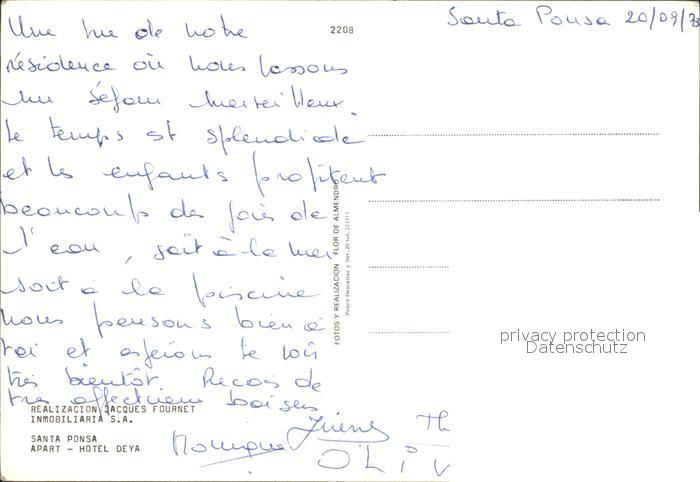 Santa Ponsa 20/09/73
2208
Une vue de notre
résidence où nous passons
un séjour merveilleux.
Le temps est splendide
et les enfants profitent
beaucoup des joies de
l'eau, soit à la mer
soit à la piscine
nous pensons bien à
toi et espérons te voir
très bientôt. Reçois de
très affectueux baisers
Monique
OLIV
FOTOS Y REALIZACION FLOR DE ALMENDRO
REALIZACION JACQUES FOURNET
INMOBILIARIA S.A.
SANTA PONSA
APART - HOTEL DEYA
privacy protection
Datenschutz